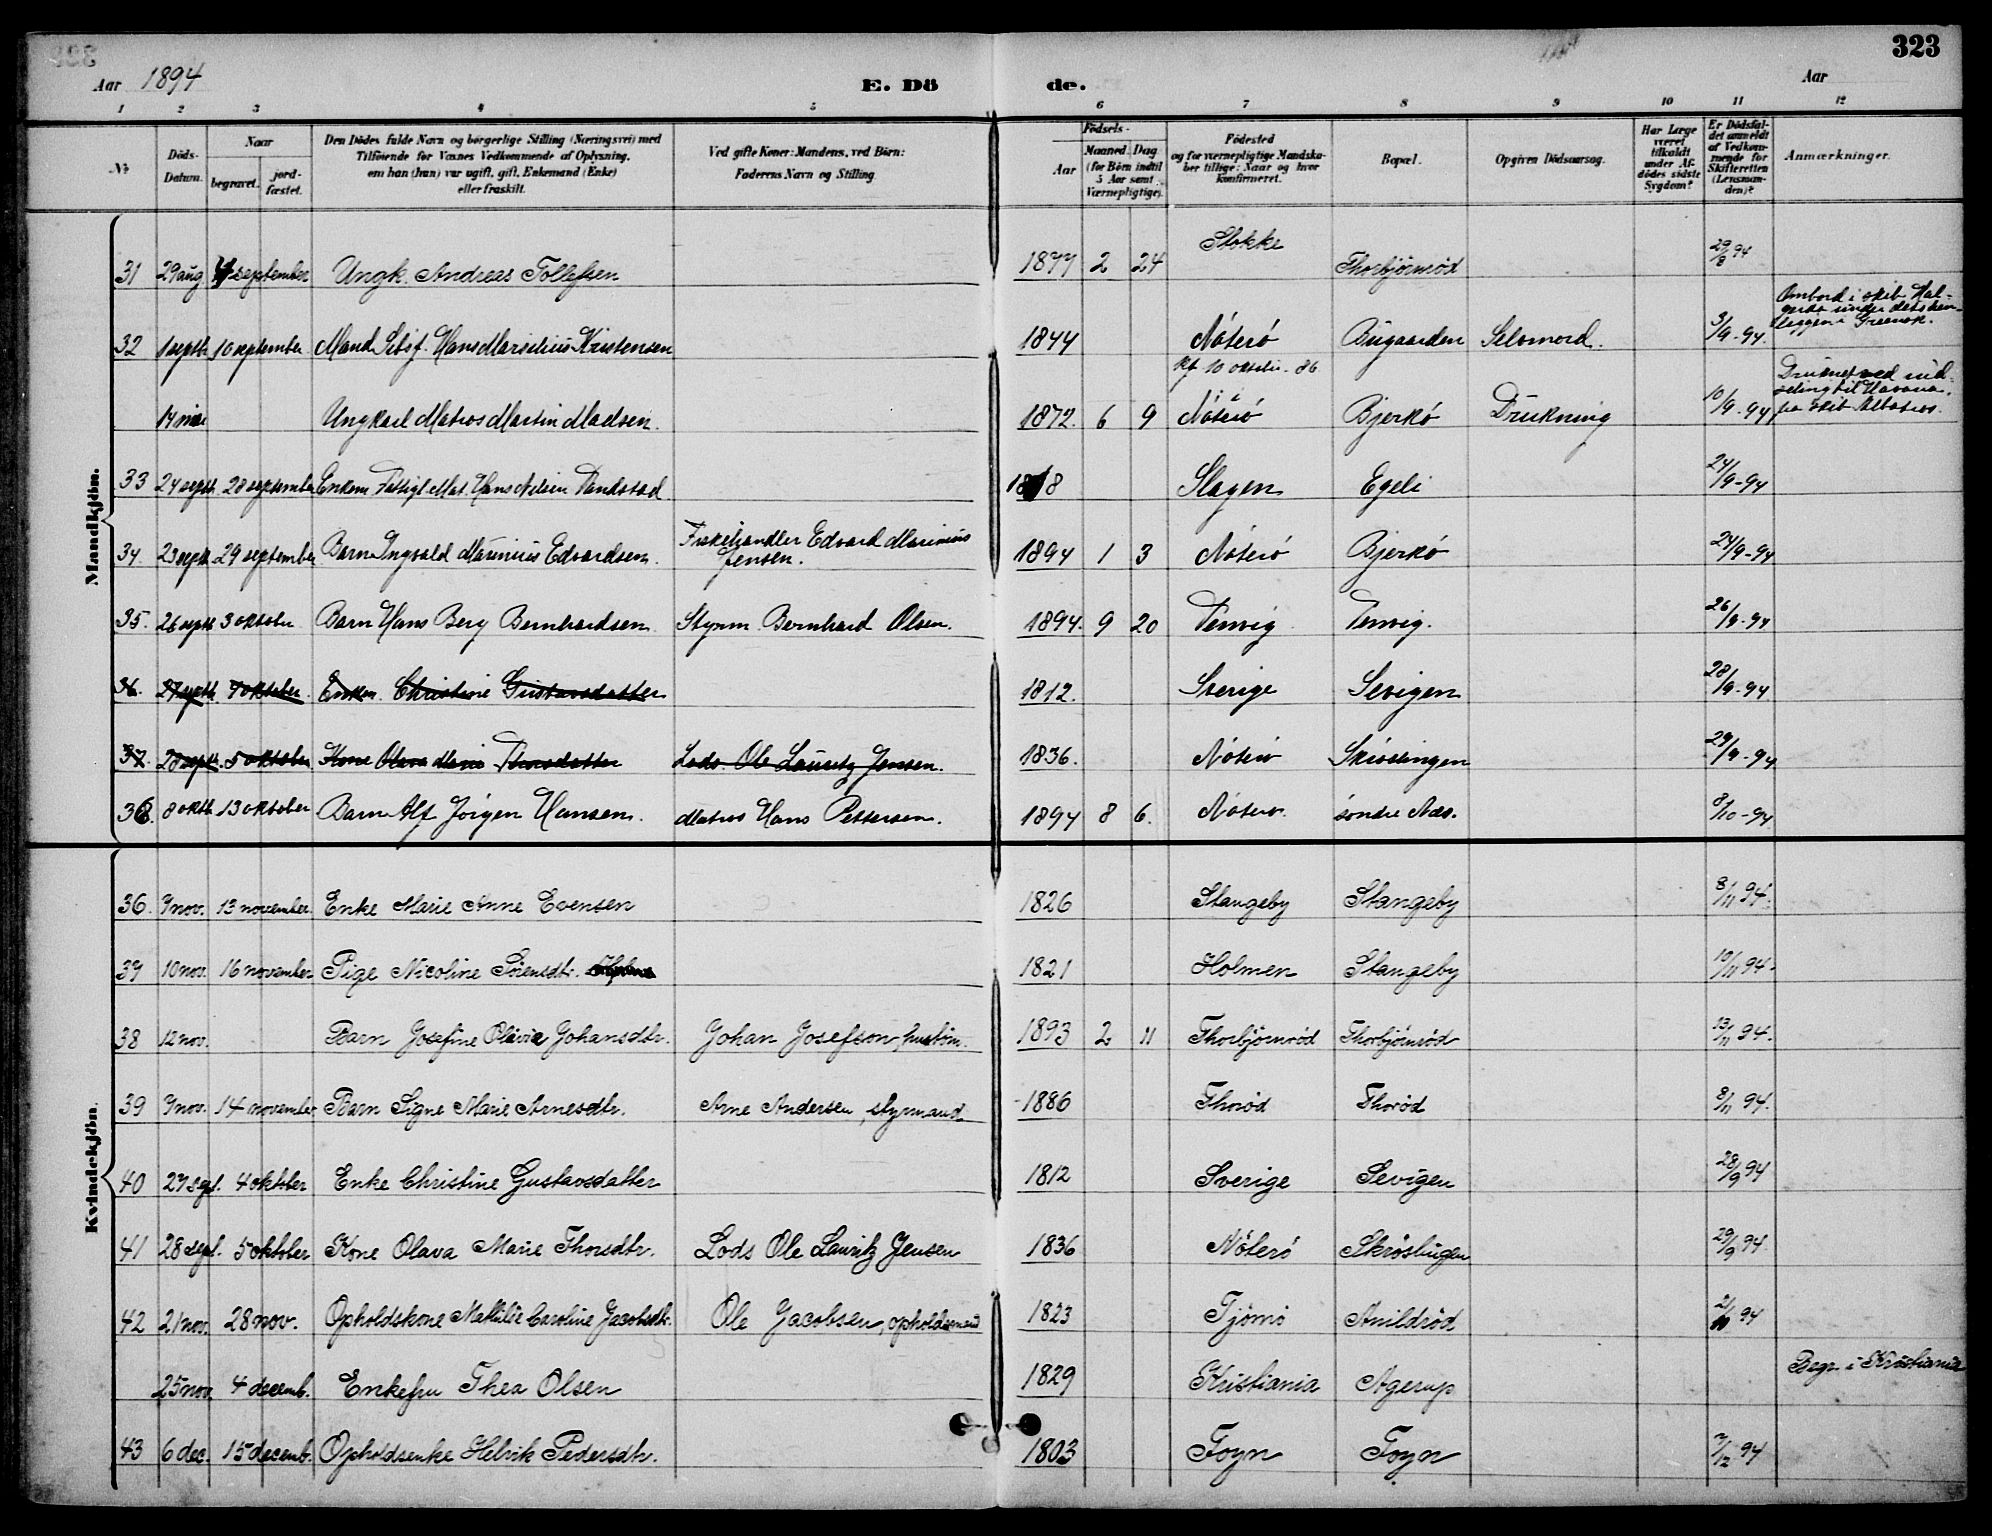 323
Aar 1894 E. Dö de. Aar
1 2 3 4 5 6 7 8 9 10 11 12
№ Döds-Datum. Naar begravet. jord-fæstet. Den Dödes fulde Navn og borgerlige Stilling (Næringsvei) med Tilföiende for Voxnes Vedkommende af Oplysning, om han (hun) var ugift, gift, Enkemand (Enke) eller fraskilt. Ved gifte Koner: Mandens, ved Börn: Faderens Navn og Stilling. Födsels- Aar Maaned. Dag. (for Börn indtil 5 Aar samt Værnepligtige). Födested og for værnepligtige Mandskaber tillige: Naar og hvor konfirmeret. Bopæl. Opgiven Dödsaarsag. Har Læge været tilkaldt under Afdödes sidste Sygdom? Er Dödsfaldet anmeldt af Vedkommende for Skifteretten (Lensmanden)? Anmærkninger.
Mandkjön.
31 29 aug 4 september Ungk. Andreas Tollefsen 1877 2 24 Stokke Thorbjörnröd 29/8 94
32 1 septb 10 september Mand Hans Marsilius Kristensen 1844 Nöterö Bugaarden Selvmord. 3/9-94. Ombord i skib
14 Ungkarl Matros Martin Madsen. 1872. 6 9 Kf 10 oktbr. 86 i Nöterö Bjerkö Drukning 10/9-94 til Havana, fra skib Albatros.
33 24 septb 28 september Enkem Hans Nilsen 1818 Slagen Egeli 24/9-94
34. 23 septb. 29 september Barn Ingvald Marinius Edvardsen. Fiskehandler Edvard Marinius Jensen. 1894 1 3 Nöterö Bjerkö 24/9-94
35. 26 septb 3 oktober Barn Hans Berg Bernhardsen Styrm. Bernhard Olsen. 1894. 9 20 Tenvig Tenvig. 26/9-94
36. 27 septb. 4 oktober. Enken Christine Gustavsdatter 1812. Sverige Sevigen 28/9-94.
37. 28 septb. 5 oktober. Kone Olava Marie Thorsdatter Lods. Ole Lauritz Jensen. 1836. Nöterö Skröslingen 29/9-94
36. 8 oktb 13 oktober Barn Alf Jörgen Hansen. Matros Hans Pettersen. 1894 8 6. Nöterö. söndre Næs. 8/10-94
Kvindekjön.
36. 7 nov. 13 november. Enke Marie Anne Evensen 1826 Stangeby Stangeby 8/11 94.
37 10 nov. 16 november Pige Nicoline Sörensdtr. 1821 Holmen Stangeby 10/11 94.
38 12 nov. Barn Josefine Olavie Johansdtr. Johan Josefson, 1893 2 11 Thorbjörnröd Thorbjörnröd 13/11 94.
39 7 nov. 14 november Barn Signe Marie Arnesdtr. Arne Andersen, styrmand 1886 Thoröd Thoröd 8/11 94.
40 27 sept. 4 oktober Enke Christine Gustavsdatter 1812 Sverige Sevigen 28/9 94
41 28 sept. 5 oktober Kone Olava Marie Thorsdtr. Lods Ole Lauritz Jensen 1836 Nöterö Skröslingen 29/9 94
42 21 nov. 28 nov. Opholdskone Mathilde Caroline Jacobsdtr. Ole Jacobsen, opholdsmand 1823 Tjömö Arnildröd 21/11 94
25 nov. 4 decemb. Enkefru Thea Olsen 1829 Kristiania Agerup Begr. i Kristiania
43 6 dec. 15 decemb. Opholdsenke Helvik Pedersdtr. 1803 Foyn Foyn 7/12 94